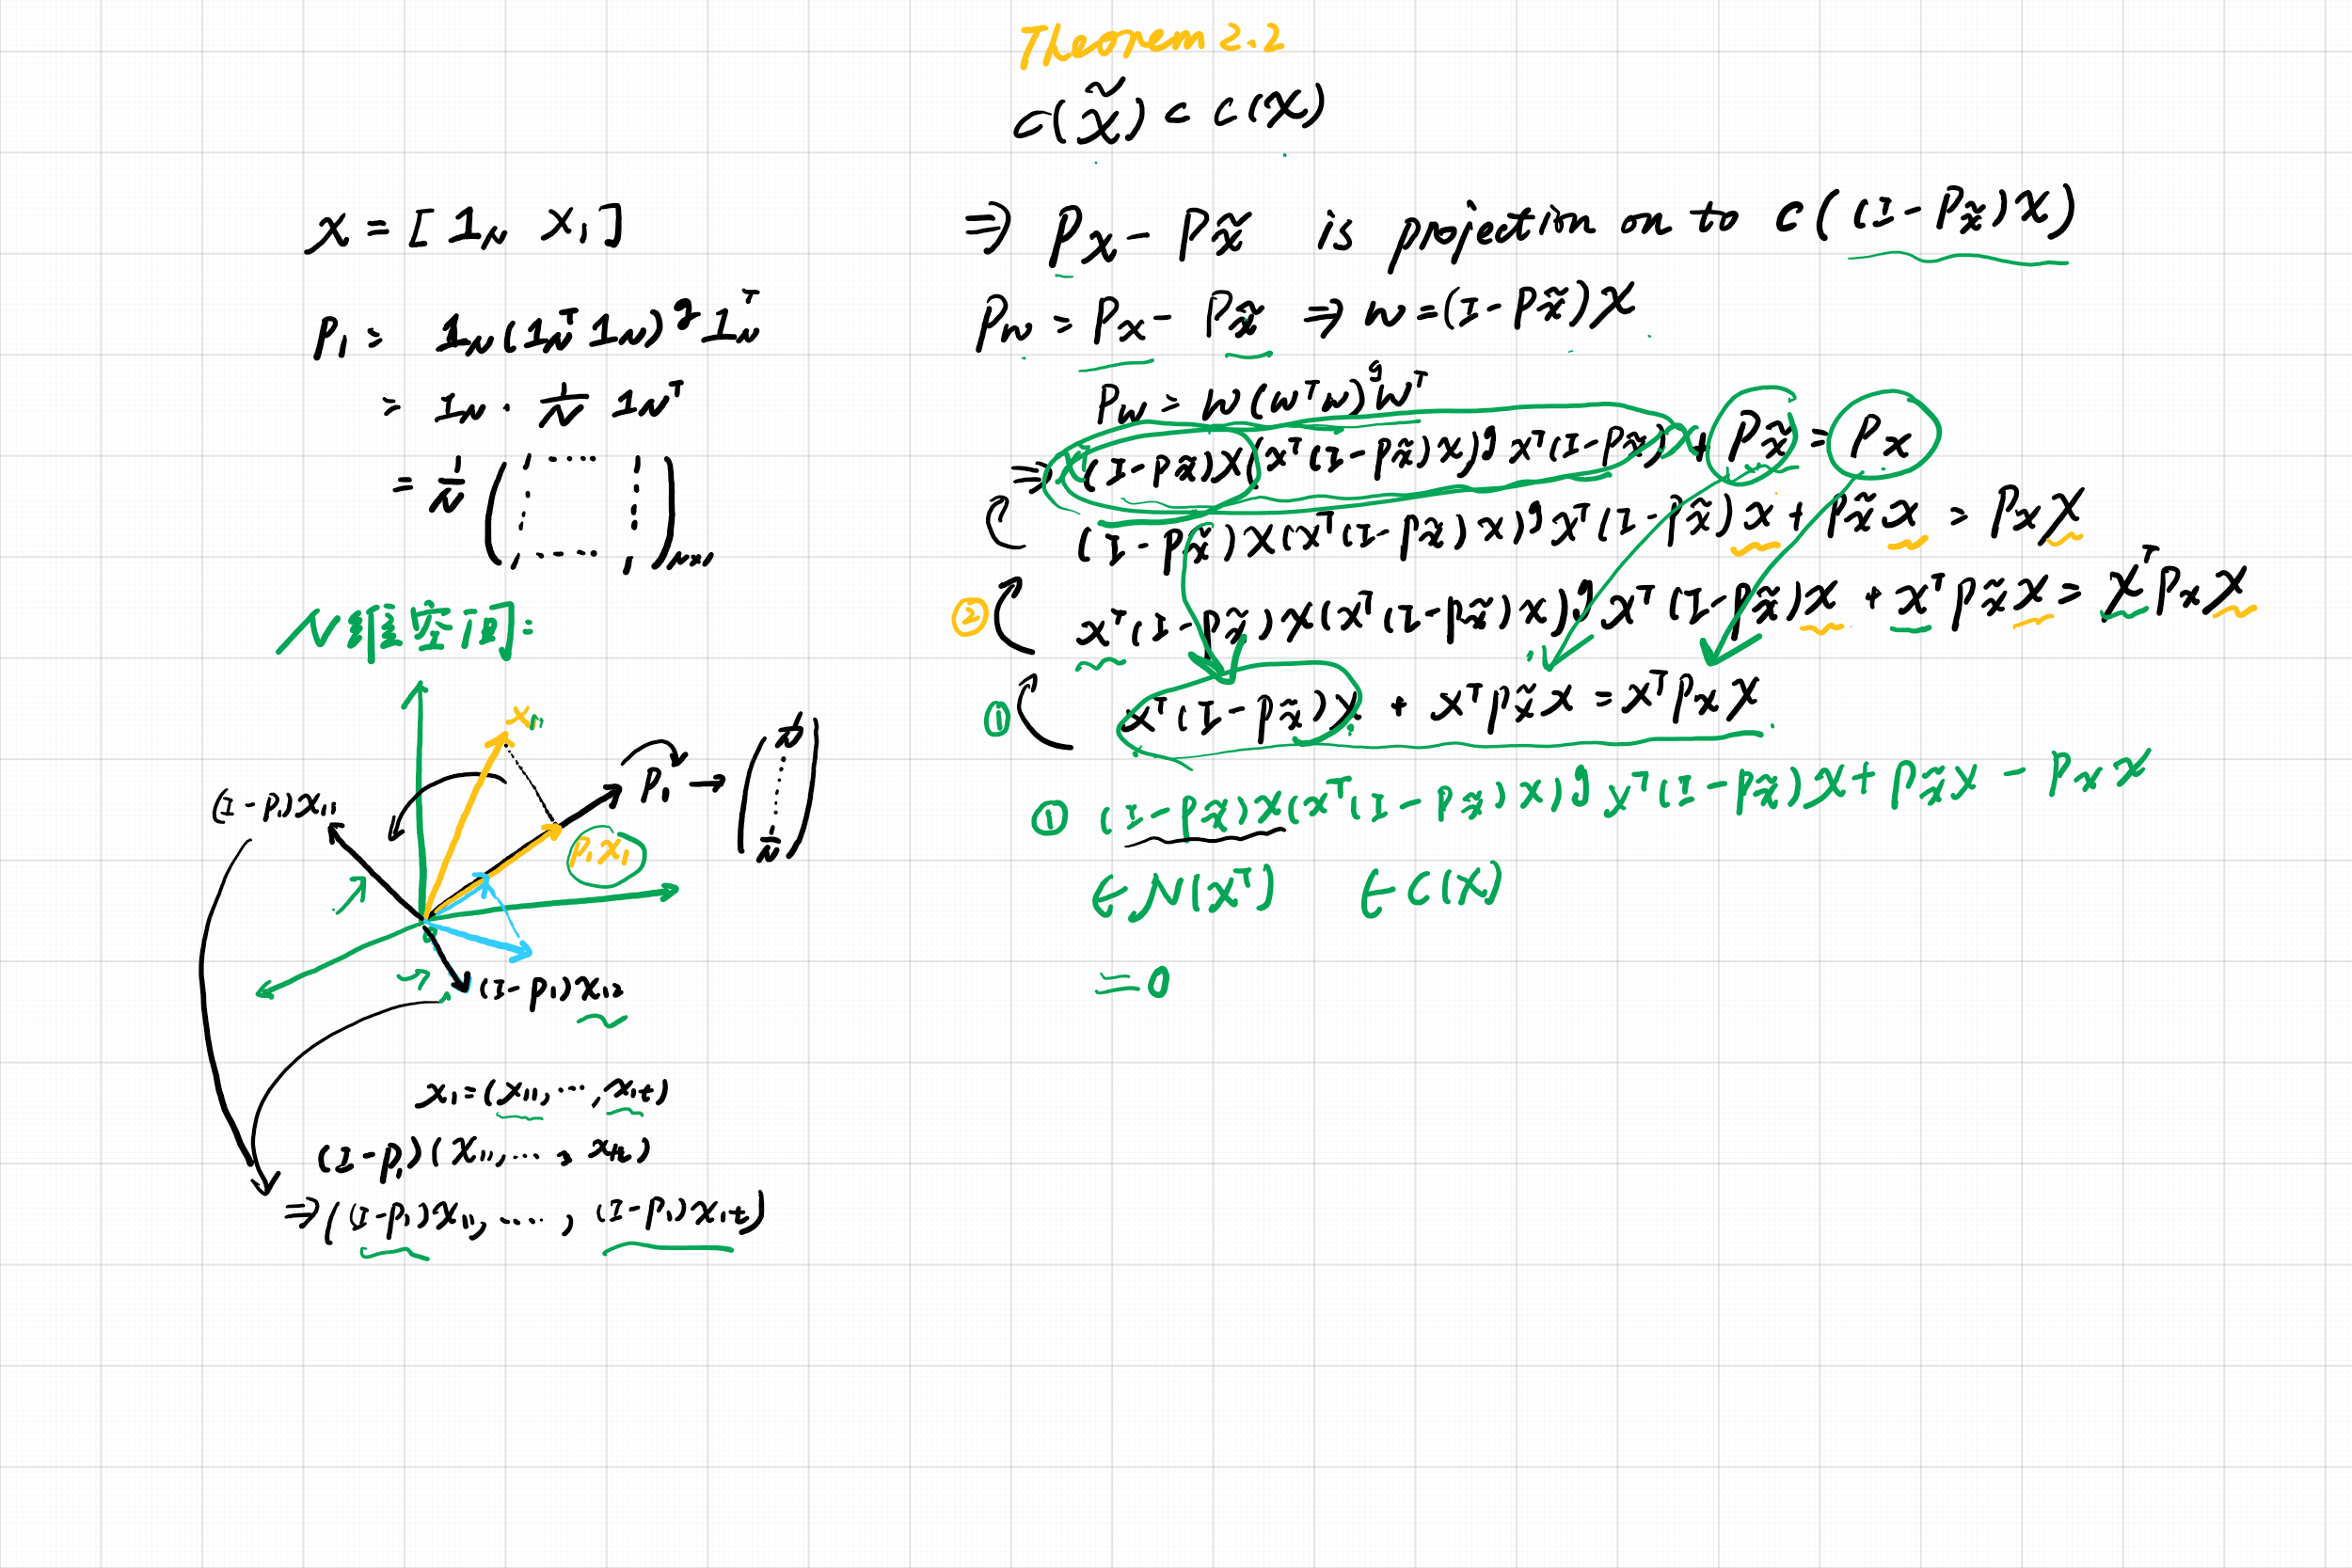 Theorem 2.2
C(X̃) ⊂ C(X)
X = [1_N X₁]
P₁ = 1_N(1_Nᵀ1_N)^g 1_Nᵀ
= 1_N · 1/N 1_Nᵀ
= 1/N (1 ···· 1 ⋮ ⋮ 1 ···· 1)_{N×N}
N維空间:
x₁₁
(I-P₁)x₁₁
P₁ → (1 ⋮ 1)
P₁X₁
(I-P₁)x₁₂
x₁=(x₁₁, ···, x₁t)
(I-P₁)(x₁₁, ···, x₁t)
⇒((I-P₁)x₁₁, ····, (I-P₁)x₁t)
⇒ P_X - P_X̃ is projection on to C((I-P_X̃)X)
P_W = P_X - P_X̃ ⇒ W=(I-P_X̃)X
P_W = W(WᵀW)^g Wᵀ
⇒ (I-P_X̃)X(Xᵀ(I-P_X̃)X)^g Xᵀ(I-P_X̃) + P_X̃ = P_X
(I-P_X̃)X(Xᵀ(I-P_X̃)X)^g Xᵀ(I-P_X̃)X + P_X̃X = P_XX
② Xᵀ(I-P_X̃)X(Xᵀ(I-P_X̃)X)^g Xᵀ(I-P_X̃)X + XᵀP_X̃X = XᵀP_XX
① Xᵀ(I-P_X̃)X + XᵀP_X̃X = XᵀP_XX
① (I-P_X̃)X(Xᵀ(I-P_X̃)X)^g Xᵀ(I-P_X̃)X + P_X̃X - P_XX
∈N(Xᵀ) ∈C(X)
=0